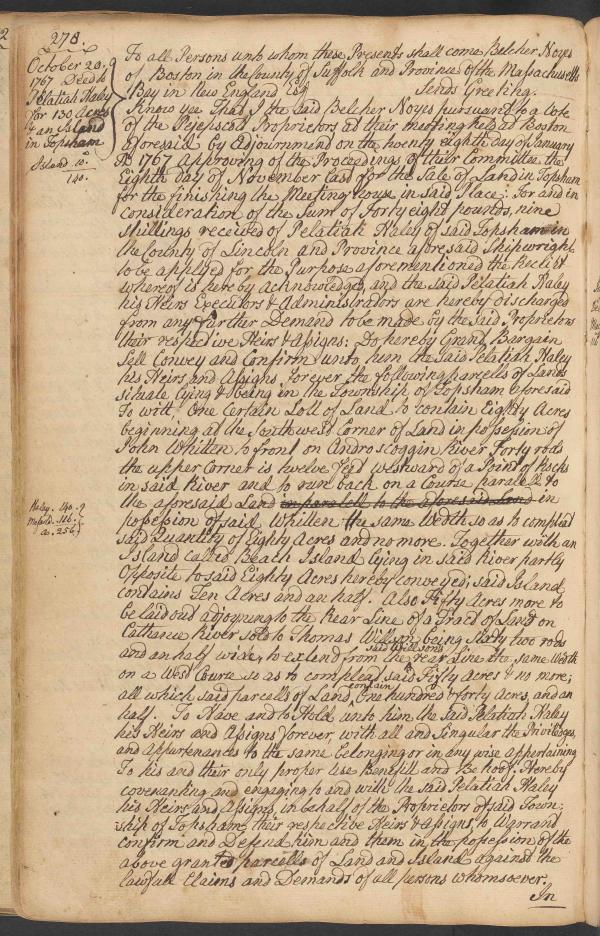 278.
October 20.
1767 Deed to
Pelatiah Haley
for 130 Acres
& an Island
in Topsham
Island 10.
140.
To all Persons unto whom these Presents shall come Belcher Noyes
of Boston in the County of Suffolk and Province of the Massachusetts
Bay in New England Esqr Sends Greeting.
Know yee That I the said Belcher Noyes pursuant to a Vote
of the Pejepscot Proprietors at their meeting held at Boston
aforesaid by adjournment on the twenty eighth day of January
AD 1767 Approving of the Proceedings of their Committee the
Eighth day of November last for the Sale of Land in Topsham
for the finishing the Meeting house in said Place: For and in
consideration of the Sum of Forty eight pounds, nine
shillings received of Pelatiah Haley of said Topsham in
the County of Lincoln and Province aforesaid Shipwright
to be applyed for the Purpose aforementioned the Receipt
whereof is hereby acknowledged, and the said Pelatiah Haley
his Heirs Executors & Administrators are hereby discharged
from any further Demand to be made by the said Proprietors
their respective Heirs & Assigns: Do hereby Grant Bargain
Sell Convey and Confirm unto him the said Pelatiah Haley
his Heirs and Assigns forever the following parcells of Land
situate lying & being in the Township of Topsham aforesaid
To witt, One Certain Lott of Land to contain Eighty Acres
beginning at the Southwest Corner of Land in possession of
John Whitten to front on Androscoggin River Forty rods
the upper Corner is twelve feet westward of a Point of Rocks
in said River and to run back on a Course paralell to
the aforesaid Land in paralell to the aforesaid Land in
possession of said Whitten the same Wedth so as to compleat
said Quantity of Eighty Acres and no more. Together with an
Island called Beach Island lying in said River partly
Opposite to said Eighty Acres hereby conveyed; said Island
contains Ten Acres and an half. Also Fifty Acres more to
be laid out adjoyning to the Rear Line of a Tract of Land on
Cathance River sold to Thomas Willson, being Sixty two rods
and an half wide, to extend from the said Willsons rear Line the same Wedth
on a West Course so as to compleat said Fifty Acres & no more;
all which said parcells of Land, contain One hundred & forty Acres, and an
half. To Have and to Hold unto him the said Pelatiah Haley
his Heirs and Assigns forever, with all and Singular the Priviledges,
and Appurtenances to the same belonging or in any wise appertaining
To his and their only proper Use Benefitt and Behoof. Hereby
covenanting and engaging to and with the said Pelatiah Haley
his Heirs and Assigns, in behalf of the Proprietors of said Town-
ship of Topsham, their respective Heirs & Assigns, to Warrand
confirm and Defend him and them in the possession of the
above granted parcells of Land and Island against the
lawfull Claims and Demands of all persons whomsoever.
In
Haley. 140.
116.
a. 256.